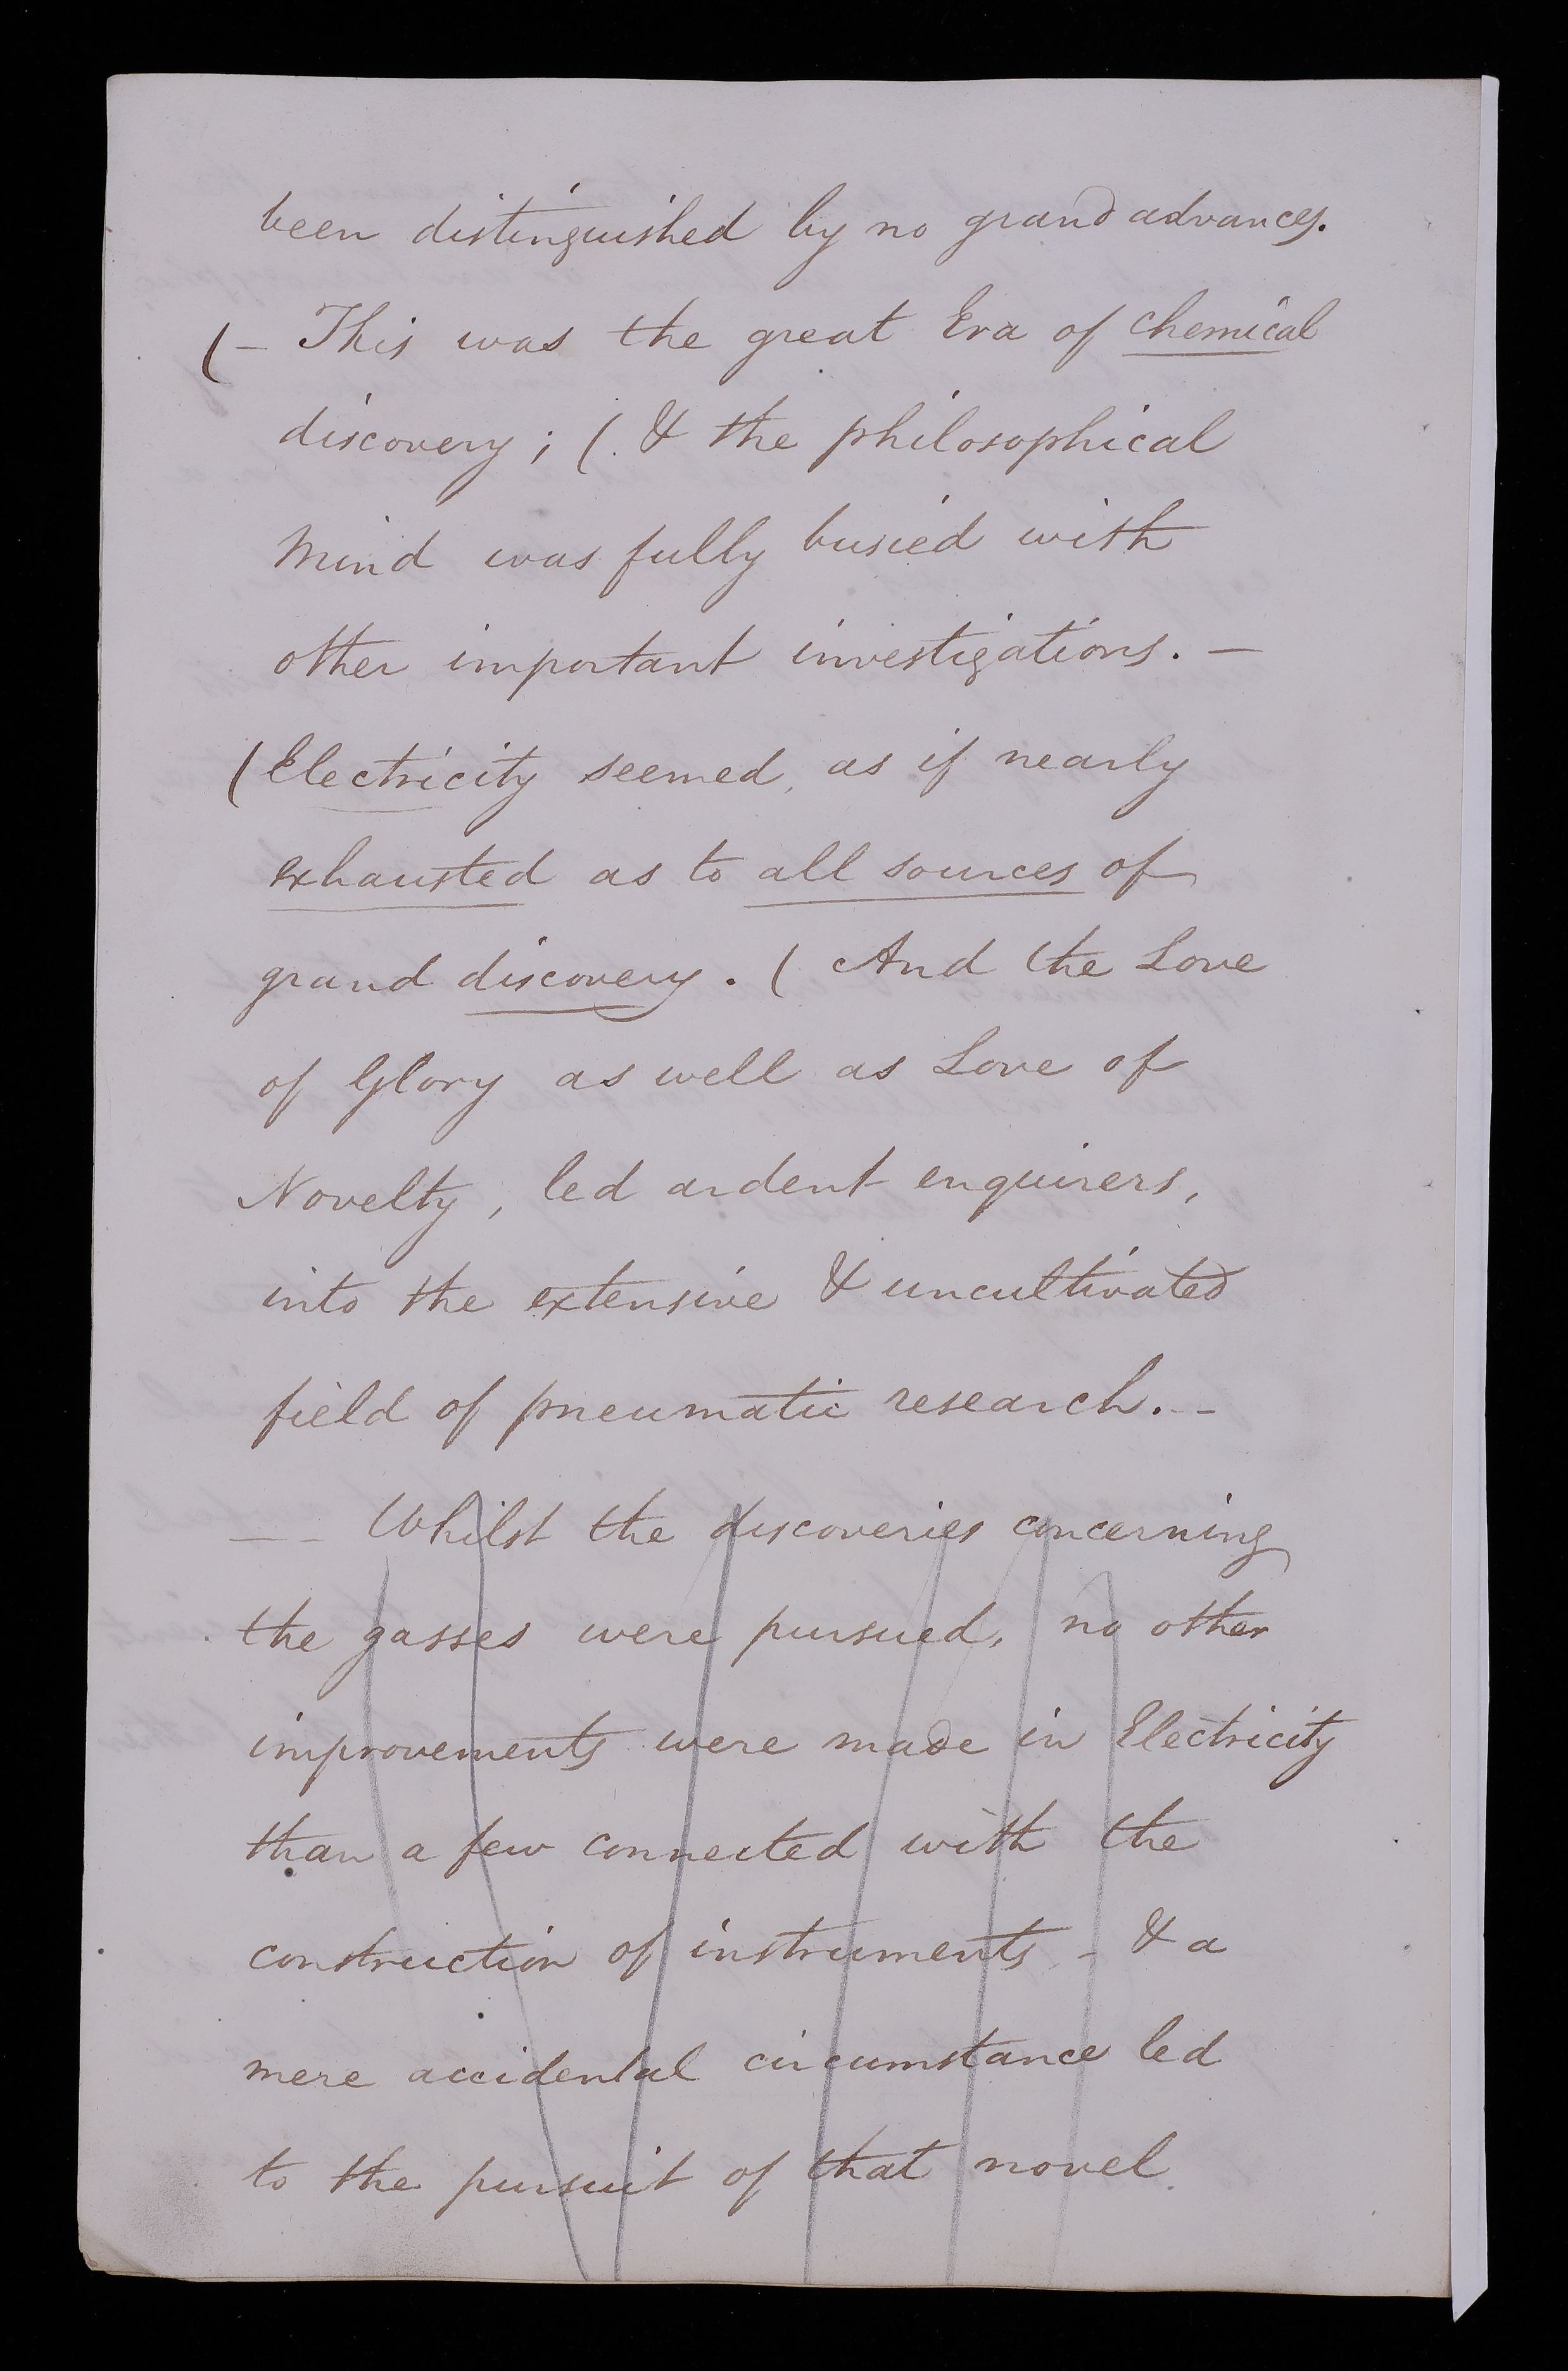 been distinguished by no grand advances.
(– This was the great Era of chemical
discovery; (. & the philosophical
Mind was fully busied with
other important investigations. –
(Electricity seemed, as if nearly
exhausted as to all sources of
grand discovery. ( And the Love
of Glory as well as Love of
Novelty, led ardent enquirers,
into the extensive & uncultivated
field of pneumatic research. –
– – Whilst the discoveries concerning
the gasses were pursued, no other
improvements were made in Electricity
than a few connected with the
construction of instruments – & a
mere accidental circumstance led
to the pursuit of that novel